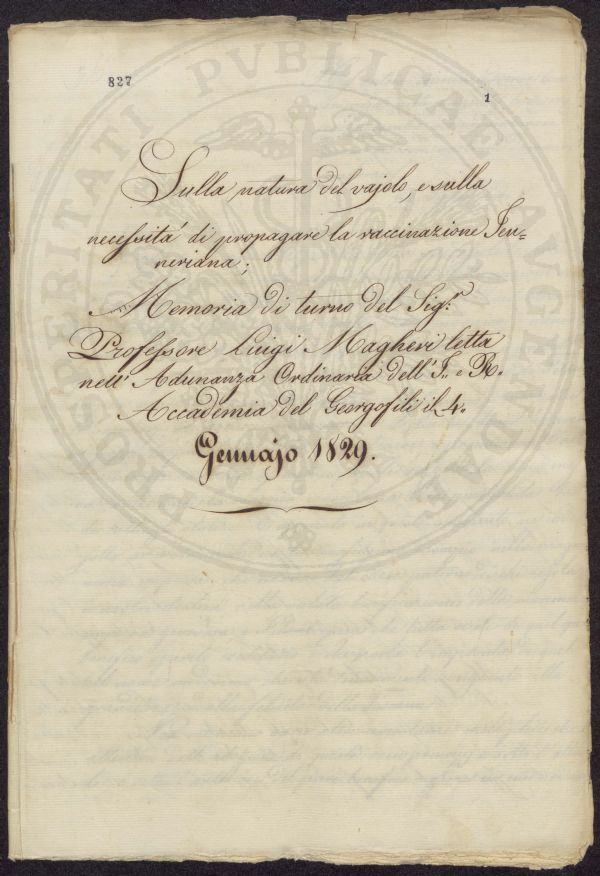 PROSPERITATI PVBLICAE AVGENDAE
827
1
Sulla natura del vajolo, e sulla
necessità di propagare la vaccinazione Jen=
neriana;
Memoria di turno del Sig.r
Professore Luigi Magheri letta
nell' Adunanza Ordinaria dell' I. e R.
Accademia dei Georgofili il 4.
Gennajo 1829.